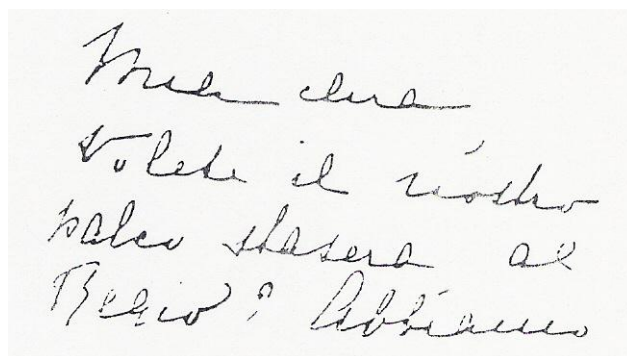 Mia cara
Volete il nostro
palco stasera al
Regio? Abbiamo